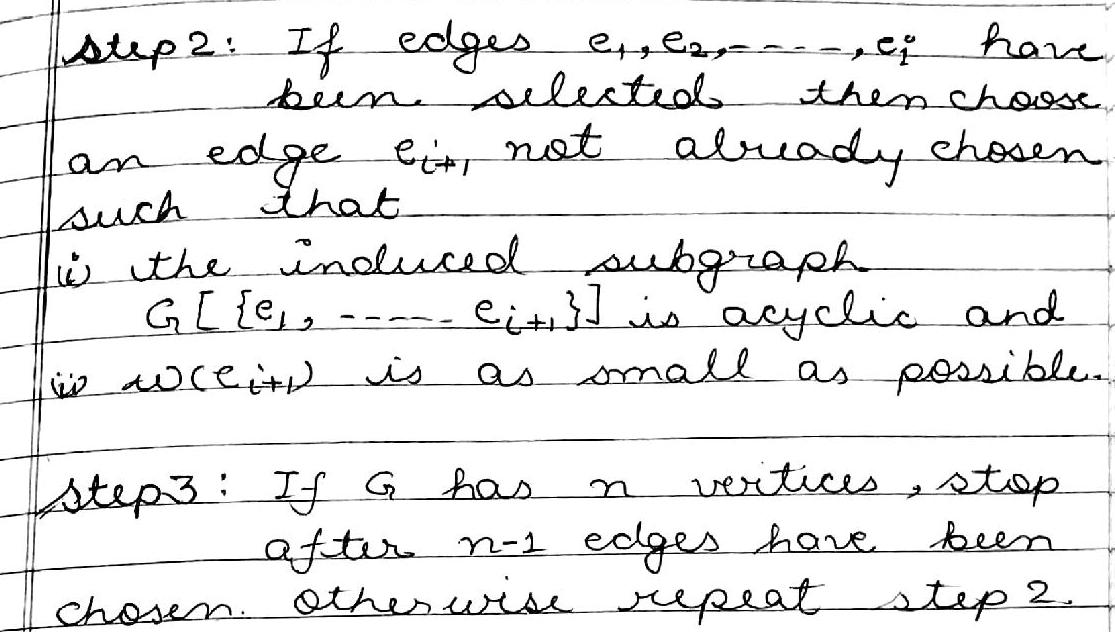 step 2: If edges e₁, e₂, - - - -, eᵢ have
been selected then choose
an edge eᵢ₊₁ not already chosen
such that
i) the induced subgraph
G[{e₁, ----- eᵢ₊₁}] is acyclic and
ii) w(eᵢ₊₁) is as small as possible.
step 3: If G has n vertices, stop
after n-1 edges have been
chosen. Otherwise repeat step 2.